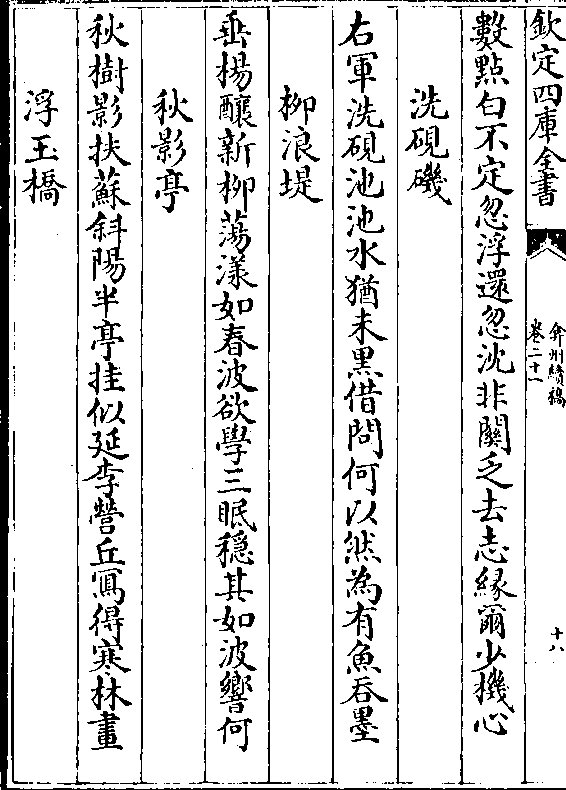 欽定四庫全書
弇州續稿
卷二十一
十八
數㸃白不定忽浮還忽沈非闗乏去志縁爾少機心
洗硯磯
右軍洗硯池池水猶未黒借問何以然為有魚吞墨
柳浪堤
垂楊釀新柳蕩漾如春波欲學三眠穏其如波響何
秋影亭
秋樹影扶蘇斜陽半亭挂似延李營丘寫得寒林畫
浮玉橋